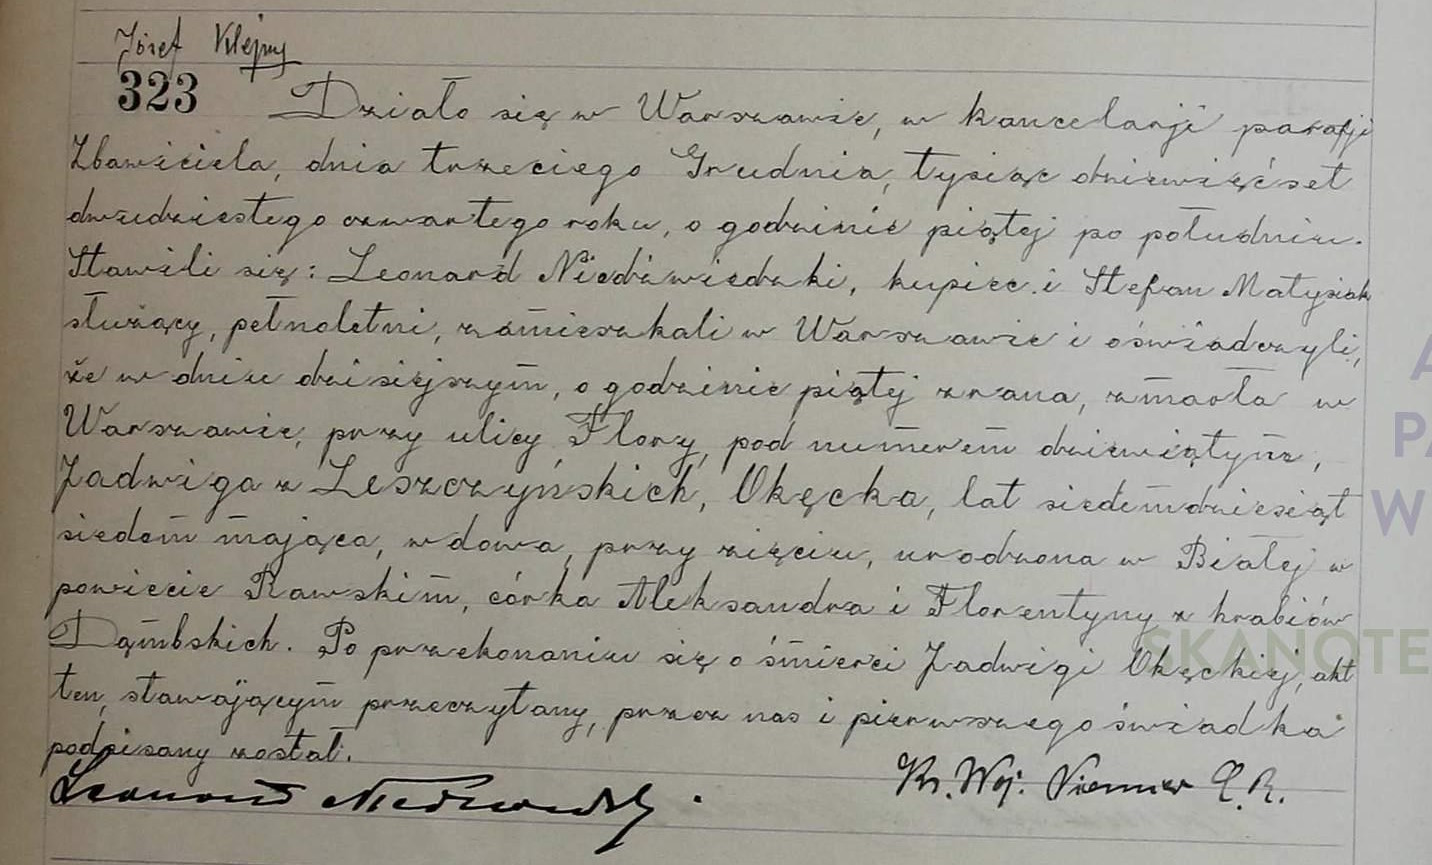 Józef Klejny
323 Działo się w Warszawie, w kancelarji parafji
Zbawiciela, dnia trzeciego Grudnia, tysiąc dziewięćset
dwudziestego czwartego roku, o godzinie piątej po południu.
Stawili się: Leonard Niedźwiedzki, kupiec i Stefan Matysiak
służący, pełnoletni, zamieszkali w Warszawie i oświadczyli,
że w dniu dzisiejszym, o godzinie piątej zrana, zmarła w
Warszawie, przy ulicy Flory, pod numerem dziewiątym,
Jadwiga z Leszczyńskich, Okęcka, lat siedemdziesiąt
siedem mająca, wdowa, przy zięciu, urodzona w Białej w
powiecie Rawskim, córka Aleksandra i Florentyny z hrabiów
Dąmbskich. Po przekonaniu się o śmierci Jadwigi Okęckiej, akt
ten, stawającym przeczytany, przez nas i pierwszego świadka
podpisany został.
Leonard Niedźwiedzki. Ks. Woj.
SKANOTE